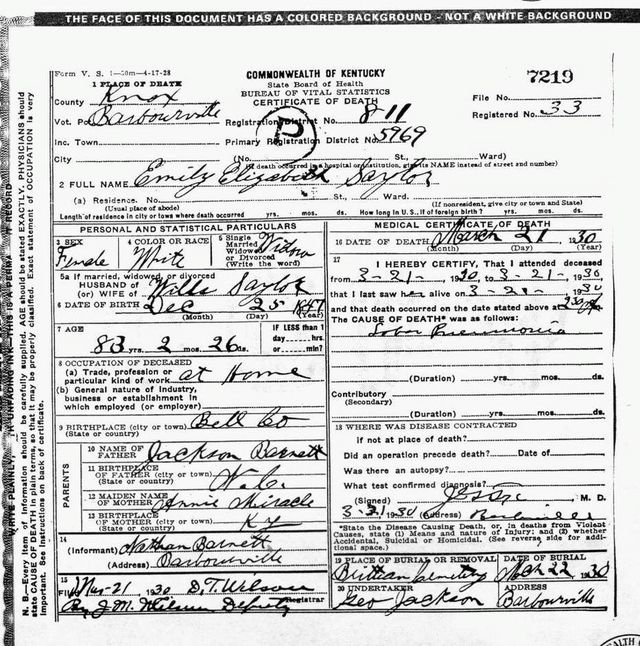 THE FACE OF THIS DOCUMENT HAS A COLORED BACKGROUND - NOT A WHITE BACKGROUND
Form V. S. 1-50m-4-17-28
COMMONWEALTH OF KENTUCKY
7219
1 PLACE OF DEATH
State Board of Health
BUREAU OF VITAL STATISTICS
CERTIFICATE OF DEATH
County Knox
File No.
Vot. Pct. Barbourville
Registration District No. 811
Registered No. 33
Inc. Town
Primary Registration District No. 5969
City (No. St., Ward)
(If death occurred in a hospital or institution, give its NAME instead of street and number)
2 FULL NAME Emily Elizabeth Saylor
(a) Residence. No. St., Ward.
(Usual place of abode) (If nonresident, give city or town and State)
Length of residence in city or town where death occurred yrs. mos. ds. How long in U. S., if of foreign birth? yrs. mos. ds.
PERSONAL AND STATISTICAL PARTICULARS
3 SEX Female
4 COLOR OR RACE White
5 Single Married Widowed or Divorced (Write the word) Widow
5a If married, widowed, or divorced
HUSBAND of
(or) WIFE of Wills Saylor
6 DATE OF BIRTH Dec 25 1847
(Month) (Day) (Year)
7 AGE
IF LESS than 1 day hrs. or min?
83 yrs. 2 mos. 26 ds.
8 OCCUPATION OF DECEASED
(a) Trade, profession or particular kind of work at Home
(b) General nature of Industry, business or establishment in which employed (or employer)
9 BIRTHPLACE (city or town) Bell Co
(State or country)
PARENTS
10 NAME OF FATHER Jackson Barnett
11 BIRTHPLACE OF FATHER (city or town)
(State or country)
12 MAIDEN NAME OF MOTHER Annie Miracle
13 BIRTHPLACE OF MOTHER (city or town) Ky
(State or country)
14
(Informant) Nathan Barnett
(Address) Barbourville
15
Filed Mar-21, 1930 D.T. Wilson
By J.M. Wilson Deputy Registrar
MEDICAL CERTIFICATE OF DEATH
16 DATE OF DEATH March 21 1930
(Month) (Day) (Year)
17
I HEREBY CERTIFY, That I attended deceased
from 3-21-, 1930 to 3-21-, 1930
that I last saw her alive on 3-21-, 1930
and that death occurred on the date stated above at 230
The CAUSE OF DEATH* was as follows:
Lobar Pneumonia
(Duration) yrs. mos. ds.
Contributory
(Secondary)
(Duration) yrs. mos. ds.
18 WHERE WAS DISEASE CONTRACTED
if not at place of death?
Did an operation precede death? Date of
Was there an autopsy?
What test confirmed diagnosis?
(Signed) M. D.
3-21 1930 (Address)
*State the Disease Causing Death, or, in deaths from Violent Causes, state (1) Means and nature of Injury; and (2) whether Accidental, Suicidal or Homicidal. (See reverse side for additional space.)
19 PLACE OF BURIAL OR REMOVAL
DATE OF BURIAL
Cemetery Mch 22 1930
20 UNDERTAKER
ADDRESS
Geo Jackson Barbourville
N. B.—Every item of information should be carefully supplied. AGE should be stated EXACTLY. PHYSICIANS should
state CAUSE OF DEATH in plain terms, so that it may be properly classified. Exact statement of OCCUPATION is very
important. See instructions on back of certificate.